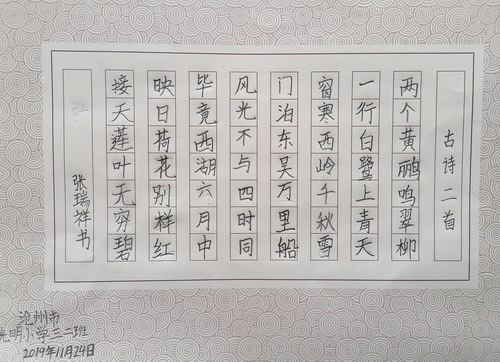 古诗二首
两个黄鹂鸣翠柳
一行白鹭上青天
窗寒西岭千秋雪
门泊东吴万里船
风光不与四时同
毕竟西湖六月中
映日荷花别样红
接天莲叶无穷碧
张瑞祥书
沧州市
光明小学三二班
2019年11月24日